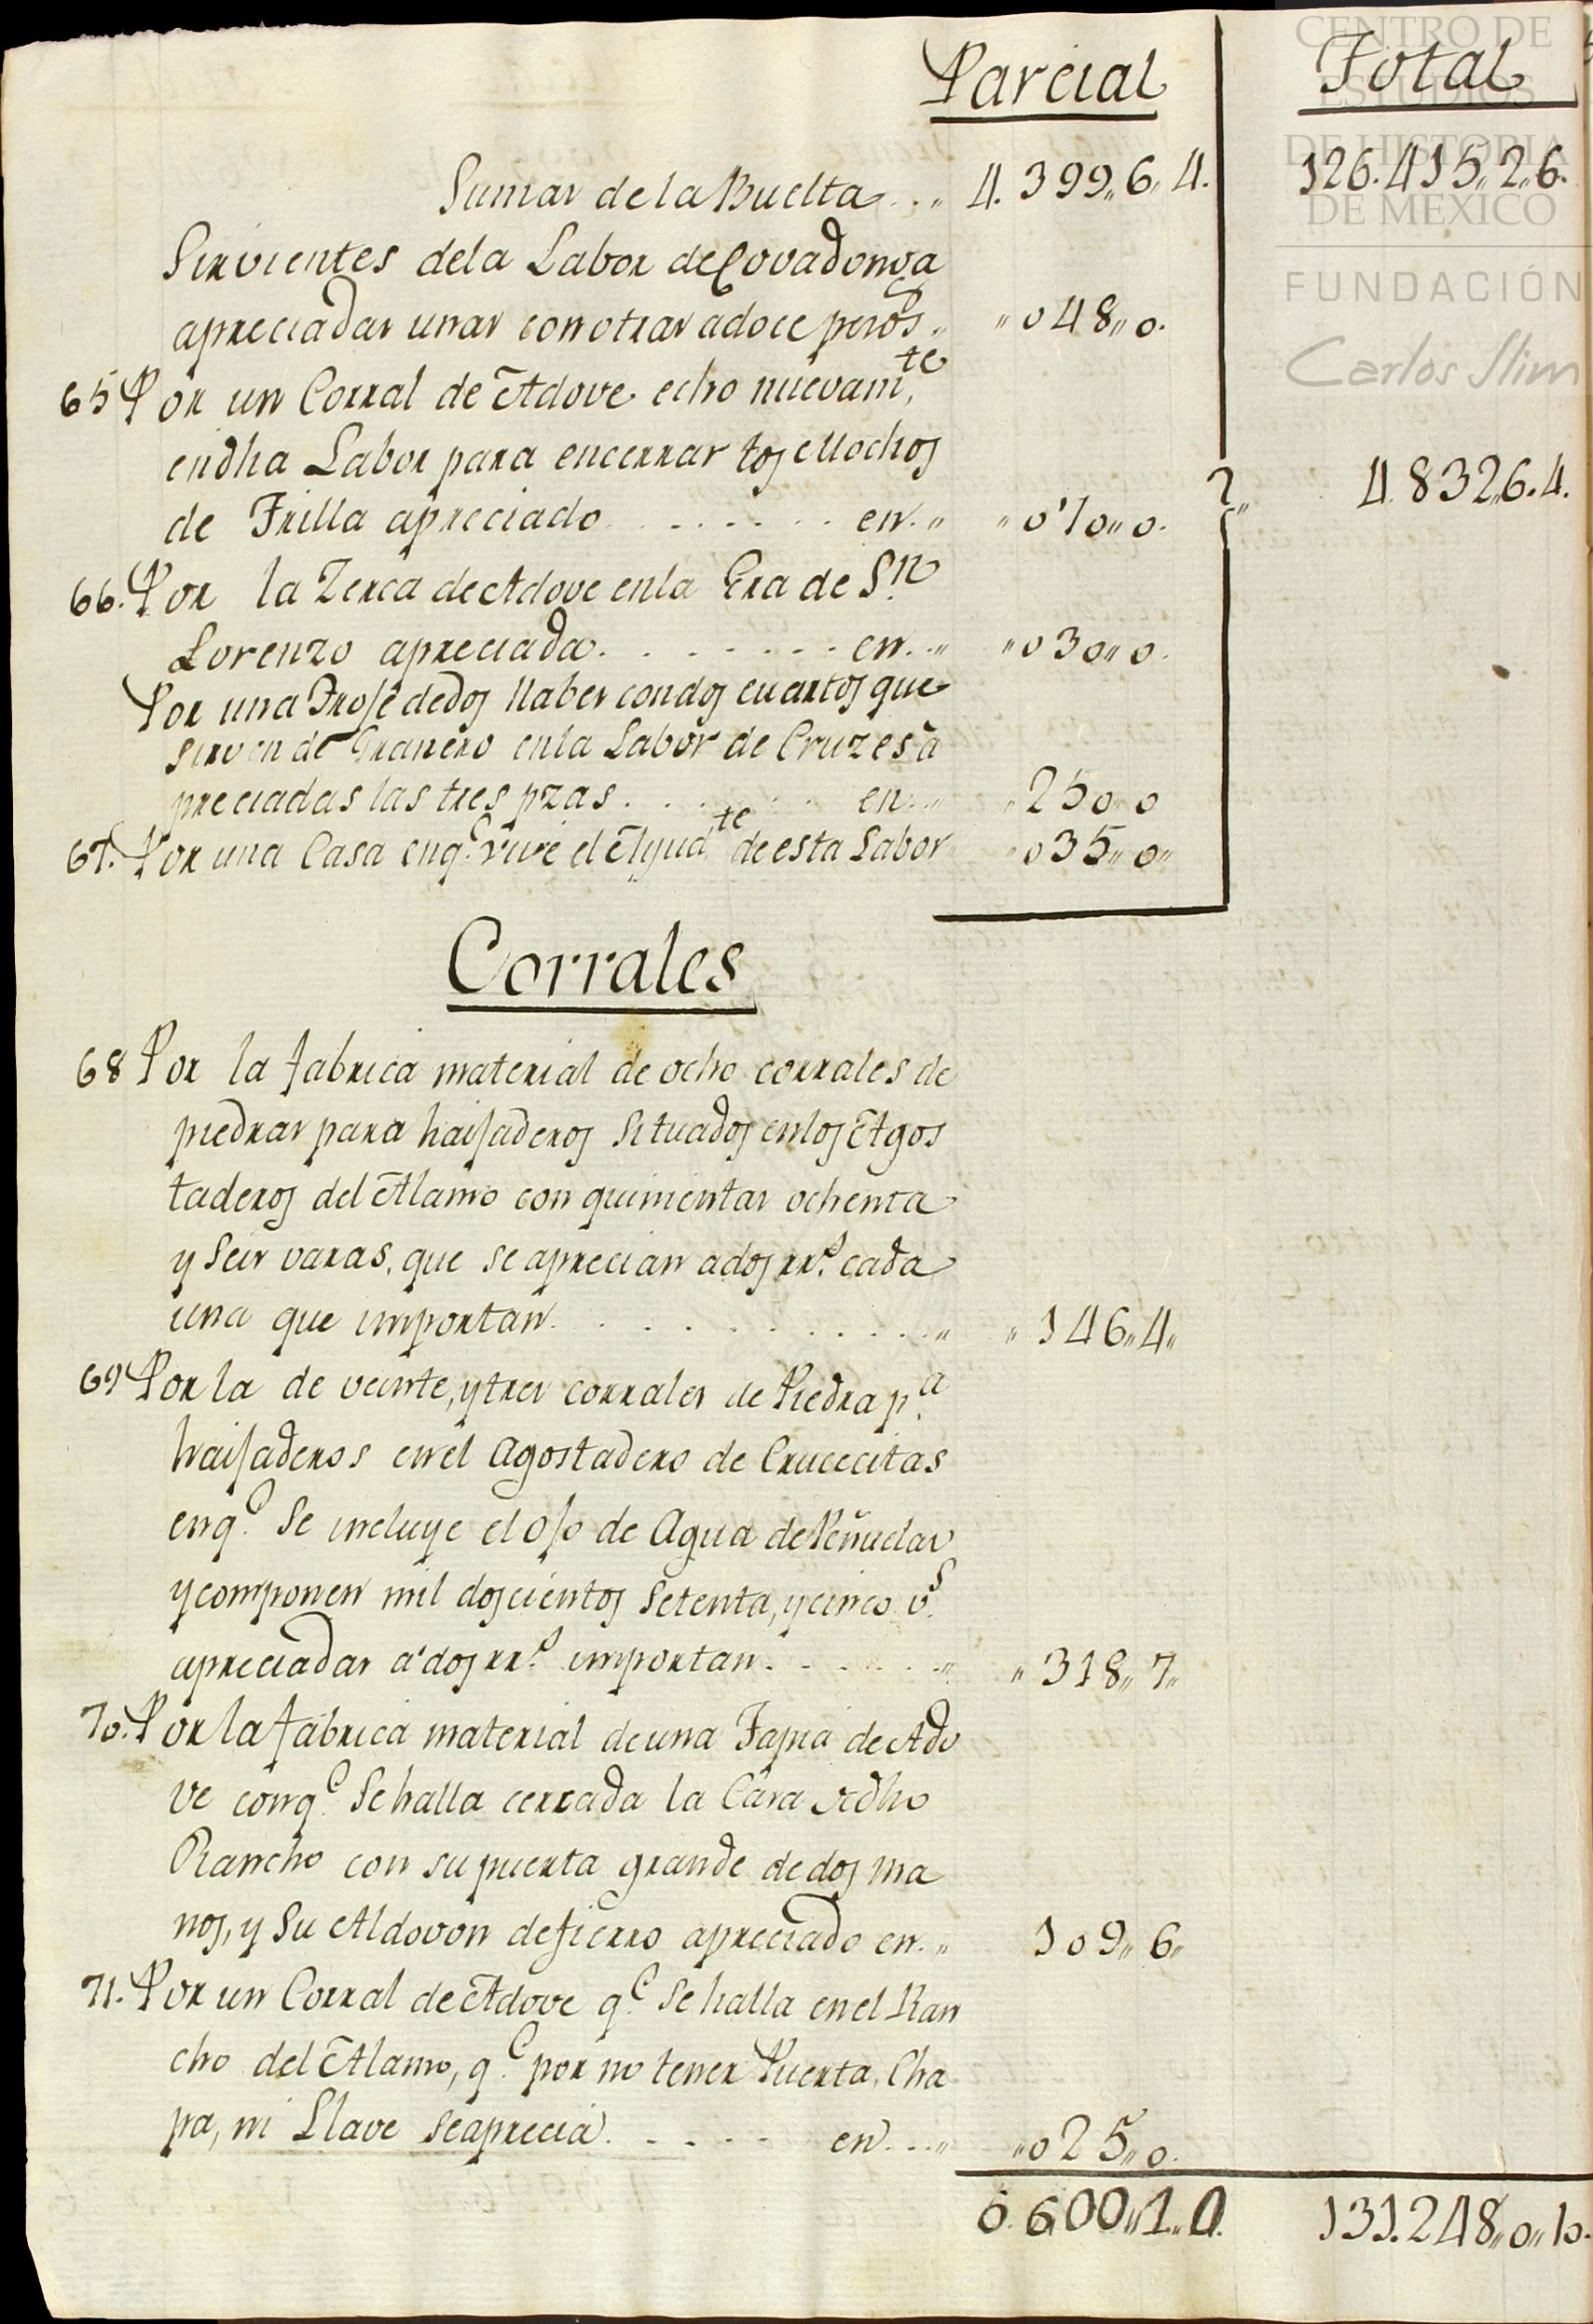 Parcial Total
Sumas de la Buelta . . „ 4. 399„ 6„ 4. 126. 415„ 2„ 6.
Sirvientes dela Labor de Covadonga
apreciadas unas con otras adoce pesos „ „ 048„ 0.
65 Por un Corral de Adove echo nuevam.te
endha Labor para encerrar los Mochos
de Trilla apreciado . . . . . . . en. „ „ 070„ 0. 4. 832„ 6. 4.
66. Por la Zerca de Adove enla Era de S.n
Lorenzo apreciada. . . . . . . en. . „ „ 030„ 0.
Por una Troje dedos Naves condos cuartos que
sirven de Granero enla Labor de Cruzes a
preciadas las tres pzas. . . . . . en. . „ „ 250„ 0
67. Por una Casa enq.e vive el Ayud.te de esta Labor „ 035„ 0„
Corrales
68 Por la fabrica material de ocho corrales de
piedras para haijaderos Situados enlos Agos
taderos del Alamo con quinientas ochenta
y Seis varas, que se aprecian ados rr.s cada
una que importan. . . . . . . . . . „ „ 146„ 4„
69 Por la de veinte, y tres corrales de Piedra p.a
haijaderos enel Agostadero de Crucecitas
enq.e Se incluye el Ojo de Agua de Peñuelas
y componen mil doscientos Setenta, y cinco v.s
apreciadas a dos rr.s importan. . . . . . „ „ 318„ 7„
70. Por la fabrica material de una Tapia de Ado
ve conq.e Se halla cerrada la Casa de dho
Rancho con su puerta grande de dos ma
nos, y Su Aldovon de fierro apreciado en. „ 109„ 6„
71. Por un Corral de Adove q.e Se halla enel Ran
cho del Alamo, q.e por no tener Puerta, Cha
pa, ni Llave Se aprecia. . . . . . en. . . „ „ 025„ 0.
0. 600„ 1„ 0. 131. 248„ 0„ 10.
CENTRO DE
ESTUDIOS
DE HISTORIA
DE MEXICO
FUNDACIÓN
Carlos Slim